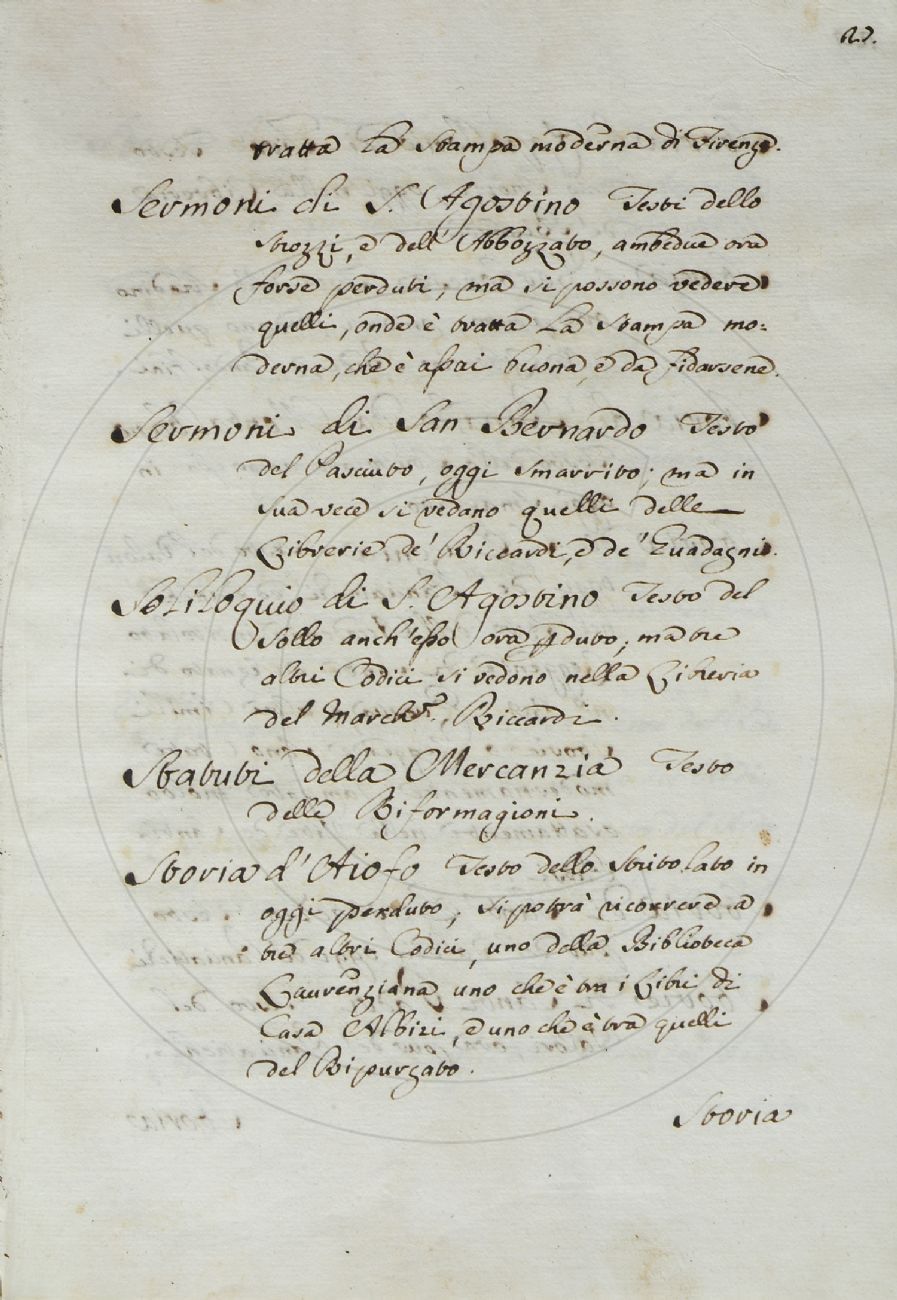 27.
tratta la Stampa moderna di Firenze.
Sermoni di S. Agostino Testi dello
Strozzi, e dell' Abbozzato, ambedue ora
forse perduti; ma si possono vedere
quelli, onde è tratta la Stampa mo=
derna, che è assai buona, e da fidarsene.
Sermoni di San Bernardo Testo
del Pasciuto, oggi smarrito; ma in
sua vece si vedano quelli delle
Librerie de' Riccardi, e de' Guadagni.
Soliloquio di S. Agostino Testo del
Sollo anch'esso ora pduto; ma tre
altri Codici si vedono nella Libreria
del March.e Riccardi.
Statuti della Mercanzia Testo
delle Riformagioni.
Storia d'Aiolfo Testo dello Stritolato in
oggi perduto; si potrà ricorrere a
tre altri Codici, uno della Biblioteca
Laurenziana uno che è tra i Libri di
Casa Albizi, e uno che è tra quelli
del Ripurgato.
Storia